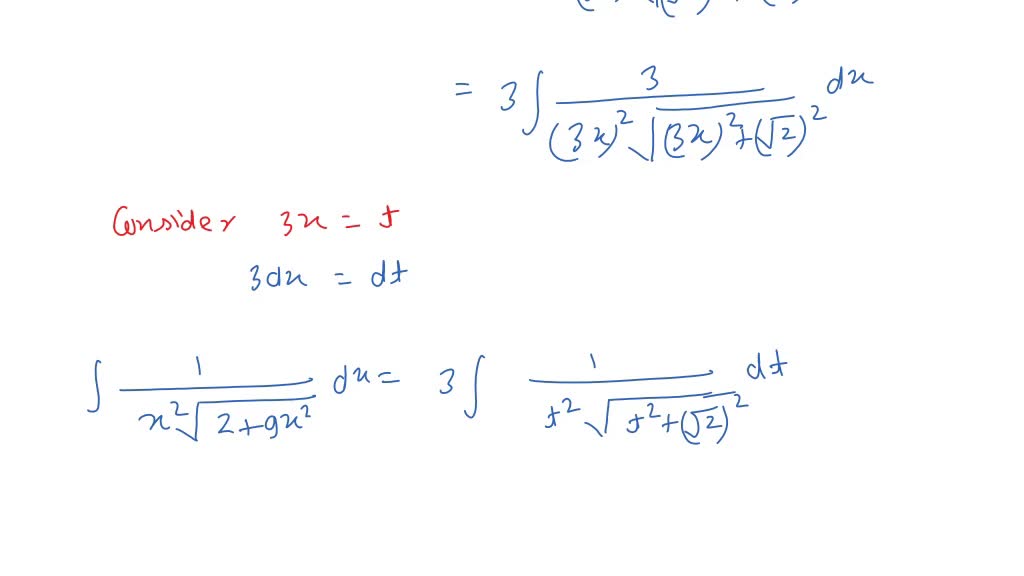 = 3∫ 3 / ((3x)² √((3x)²+(√2)²)) dx
Consider 3x = t
3dx = dt
∫ 1 / (x² √(2+9x²)) dx = 3∫ 1 / (t² √(t²+(√2)²)) dt